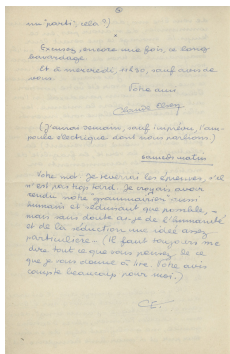 un "parti", cela ?)
Excusez, encore une fois, ce long
bavardage
Et à mercredi, 11h30, sauf avis de
vous.
Votre ami
(J'aurai demain, sauf imprévu, l'am-
poule électrique dont nous parlions.)
samedi matin
Votre mot. Je reverrai les épreuves, s'il
n'est pas trop tard. Je croyais avoir
rendu notre grammairien aussi
humain et séduisant que possible, —
mais sans doute ai-je de l'humanité
et de la séduction une idée assez
particulière — (il faut toujours me
dire tout ce que vous pensez de ce
que je vous donne à lire. Votre avis
compte beaucoup pour moi.)